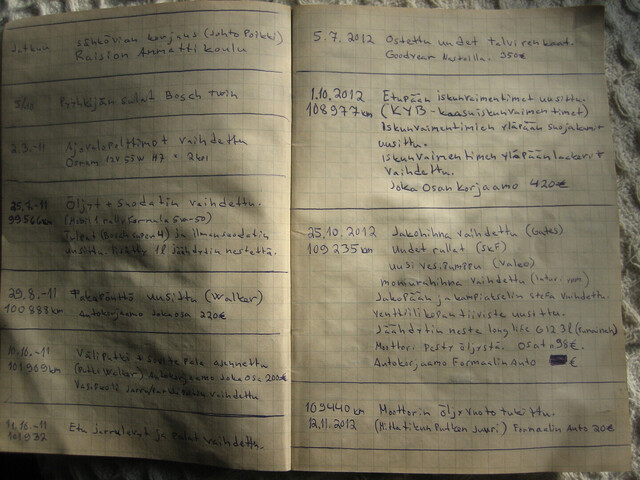 sähkövian korjaus (Johto Poikki)
Raision Ammatti koulu
Pyyhkijän sulat Bosch Twin
2.3.-11 Ajovalopolttimot vaihdettu
Osram 12V 55W H7 * 2kpl
-11 Öljyt + Suodatin vaihdettu.
99566km (Mobil 1 rally formula 5w-50)
Tulpat (Bosch super 4) ja ilmansuodatin
uusittu. Lisätty 1l jäähdytin nestettä.
29.8.-11 Takapönttö uusittu (Walker)
100888km Autokorjaamo Joka osa 220€
10.10.-11 Väliputki + asennettu
101909km (Putki Walker) Autokorjaamo Joka Osa 200€
vaihdettu
11.10.-11 Etu jarrulevyt ja palat vaihdettu.
101932
5.7.2012 Ostettu uudet talvirenkaat.
Goodyear Nastoilla. 350€
1.10.2012 Etupään iskunvaimentimet uusittu.
108977km (KYB-kaasuiskunvaimentimet)
Iskunvaimentimien yläpään suojakumit
uusittu.
Iskunvaimentimen yläpään laakerit
vaihdettu.
Joka Osan korjaamo 420€
25.10.2012 Jakohihna vaihdettu (Gates)
109235km Uudet rullat (SKF)
uusi vesipumppu (Valeo)
moniurahihna vaihdettu
Jakopään ja kampiakselin stefa vaihdettu.
Venttiilikopan tiiviste uusittu.
Jäähdytin neste long life G12 3l (Punainen)
Moottori pesty öljystä. Osat 98€
Autokorjaamo Formaalin Auto €
109440km Moottorin öljyvuoto tukittu.
12.11.2012 (Mittatikun Putken Juuri) Formaalin Auto 20€